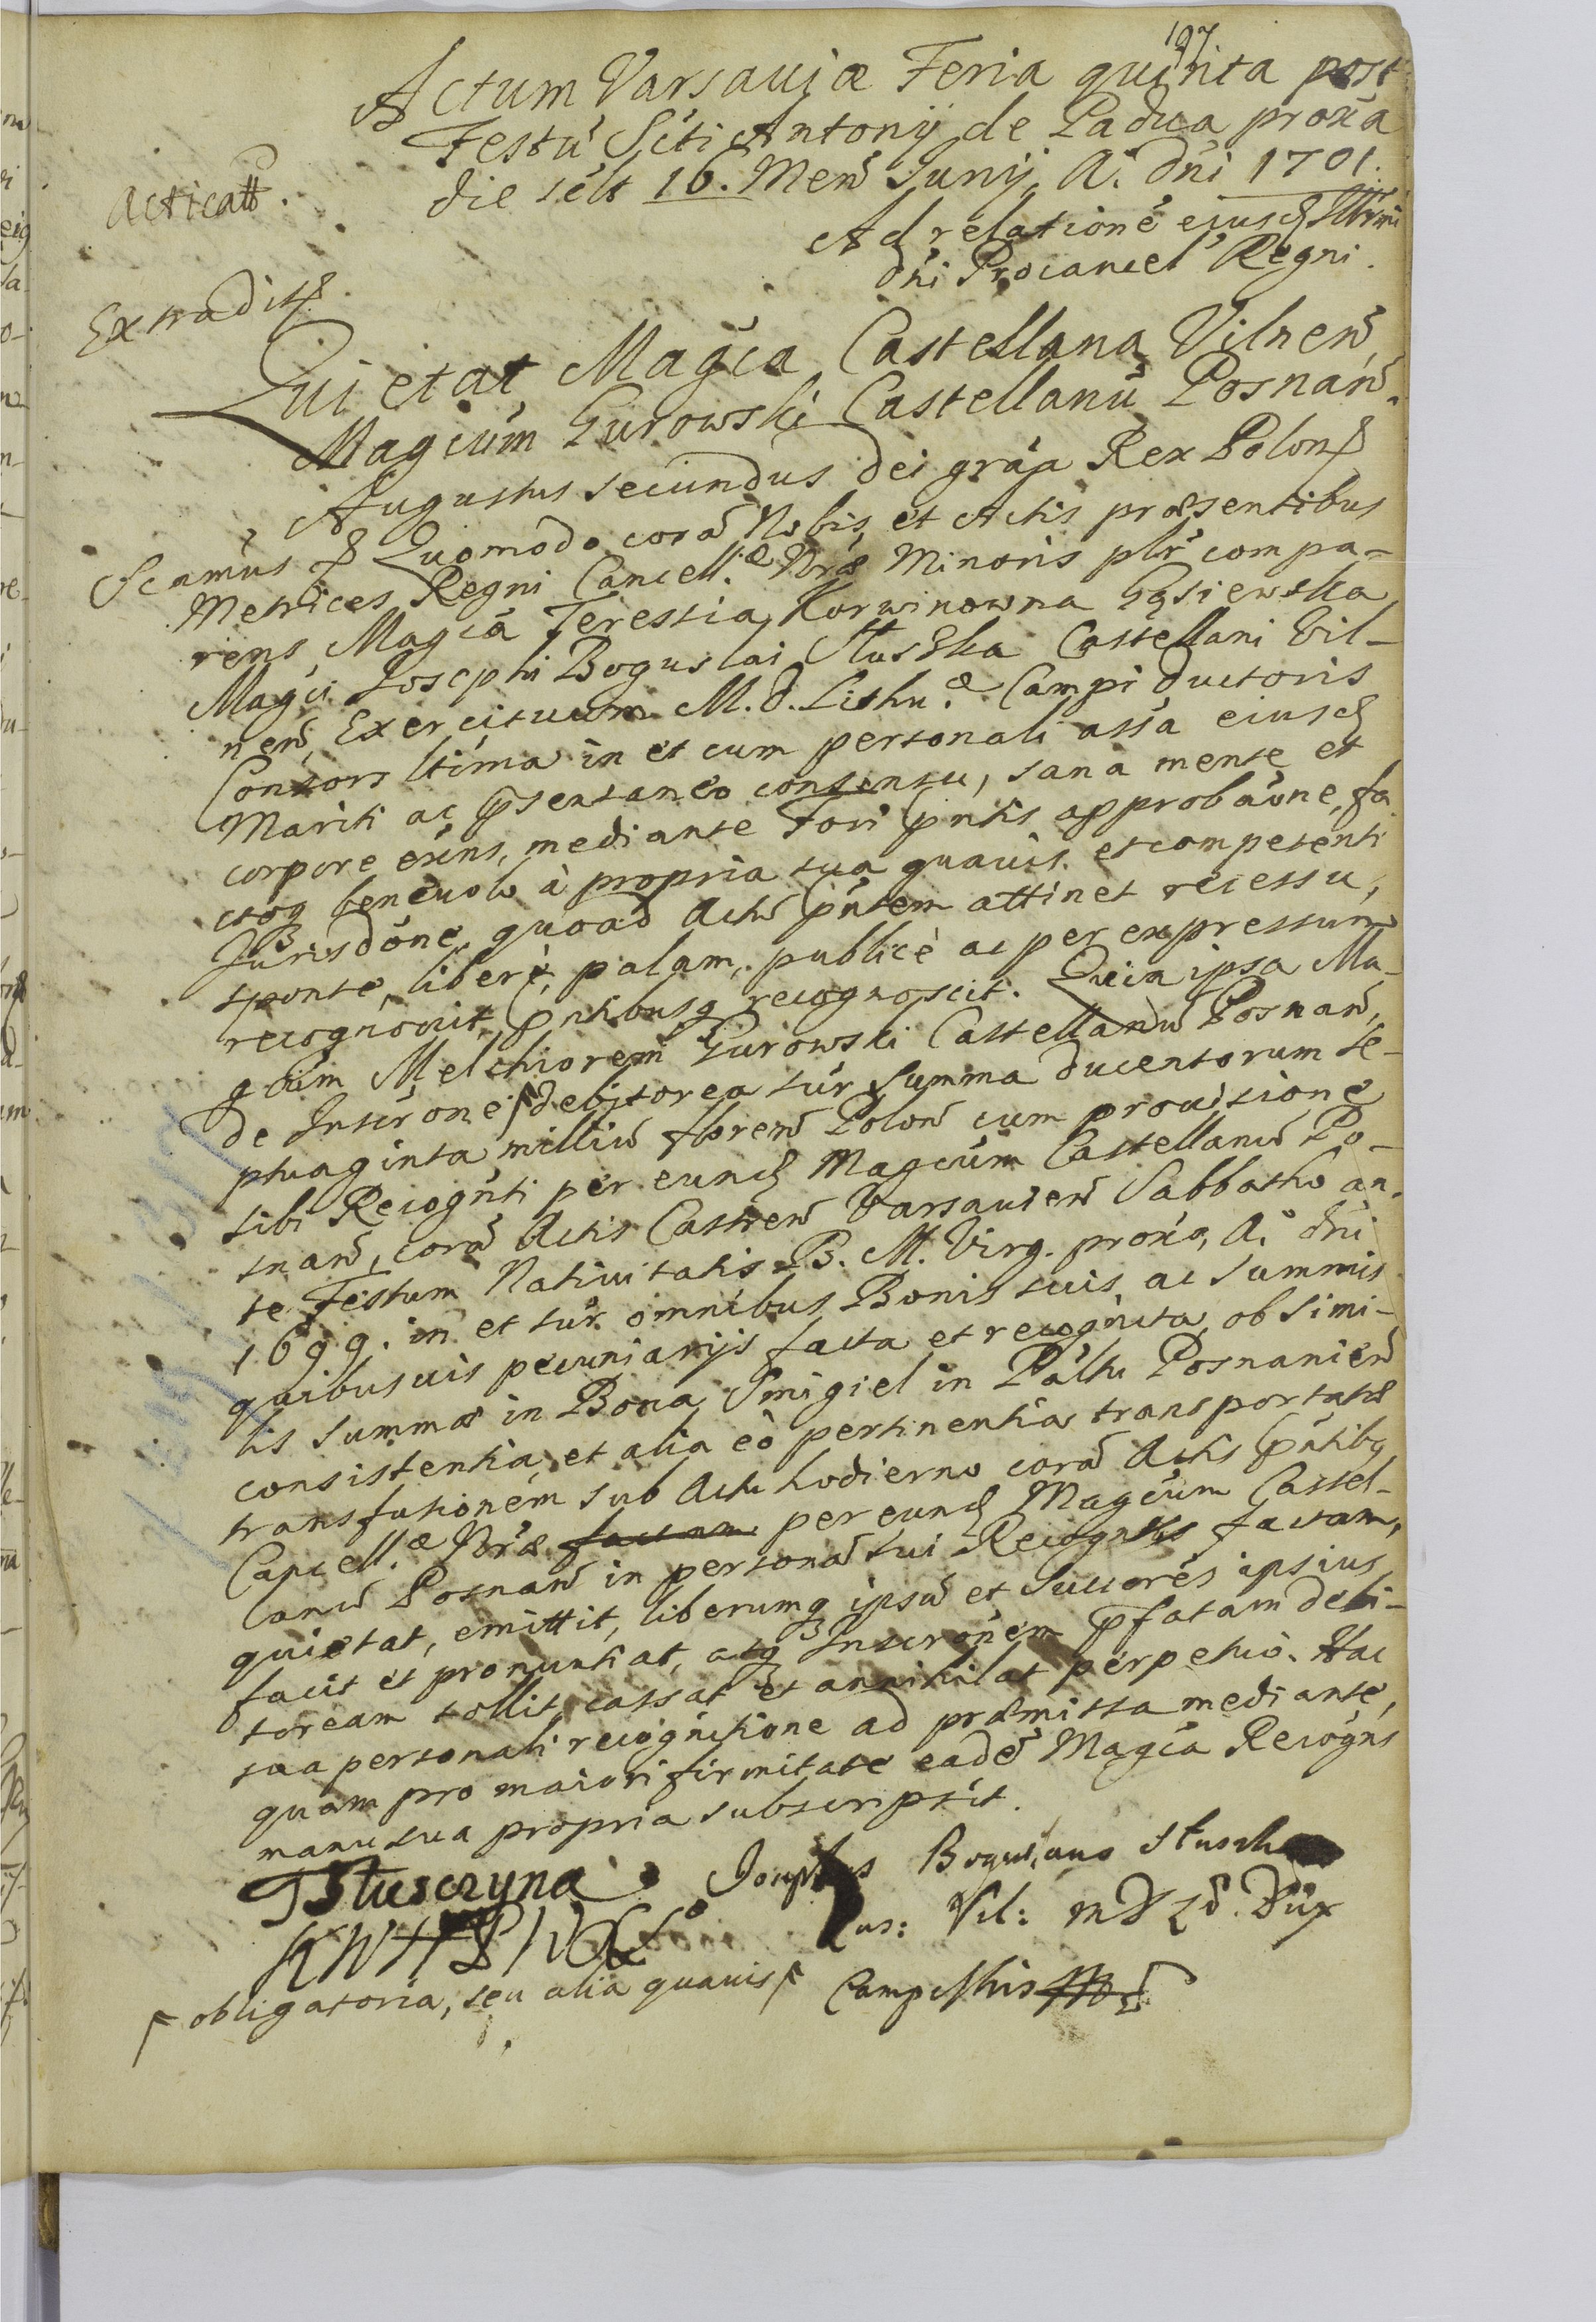 197
Actum Varsaviæ Feria quinta post
Festũ Sc̃ti Antonij de Padua prox̃a
die sc̃lt 16. Men̄ Junij A. D̃ni 1701.
Acticatt.
Ad relationẽ eiusd Illr̃mi
D̃ni Procancel Regni.
Extradit
Quietat Mag̃ca Castellana Vilnen̄,
Mag̃cum Gurowski Castellanũ Posnan̄.
Augustus secundus Dei gr̃a Rex Polon
Scimus Quomodo corã Nobis, et Actis præsentibus
Metrices Regni Cancell. Nr̃æ Minoris pl̃r compa-
rens Mag̃ca Teressia Korwinowna Gąsiewska
Mag̃ci Josephi Boguslai Sluszka Castellani Vil-
nen̄, Exercituum M. D. Lithu. Campi Ductoris
Consors l̃tima in et cum personali ass̃a eiusd
Mariti ac p̃sentaneo consensu, sana mente et
corpore ex̃ns, mediante Fori p̃ntis approba̅o̅ne, fa
ctoq benevolo à propria sua quavis et competenti
Jurisd̃one, quoad Actũ p̃ntem attinet recessu,
sponte, liberè, palam, publicè ac per expressum
recognovit, p̃ntibusq recognoscit. Quia ipsa Ma-
g̃cum Melchiorem Gurowski Castellanũ Posnan̄,
de Inscr̃one debitorea sur̃ Summa ducentorum se-
ptuaginta milliũ floren̄ Polon̄ cum provisione
sibi Recogn̄ti per eund Mag̃cum Castellanũ Po-
snan̄, corã Actis Castren̄ Varsavien̄ Sabbatho an-
te Festum Nativitatis B. M. Virg. prox̃o, A. D̃ni
1699. in et sur̃ omnibus Bonis suis ac summis
quibusvis pecuniarijs facta et recognita, ob simi-
lis summæ in Bona Smigiel in Pal̃tu Posnanien̄
consistentia, et alia eò pertinentia transportatæ
transfusionem sub Actu hodierno corã Actis p̃ntibq
Cancell. Nr̃æ factam per eund Mag̃cum Castel-
lanũ Posnan̄ in personã sui Recogn̄tis factam,
quietat, emittit, liberumq ipsũ et Succ̃ores ipsius
facit et pronuntiat, atq Inscr̃onem p̃fatam debi-
toream tollit, cassat et annihilat perpetuò. Hac
sua personali recognitione ad præmissa mediante,
quam pro maiori firmitate eadẽ Mag̃ca Recogñs
manu sua propria subscripsit.
TSłusczyna
KWHPWXL
Josephus Boguslaus Slusch
Cas: Vil: MD LD. Dux
Campestris
obligatoria, seu alia quavis